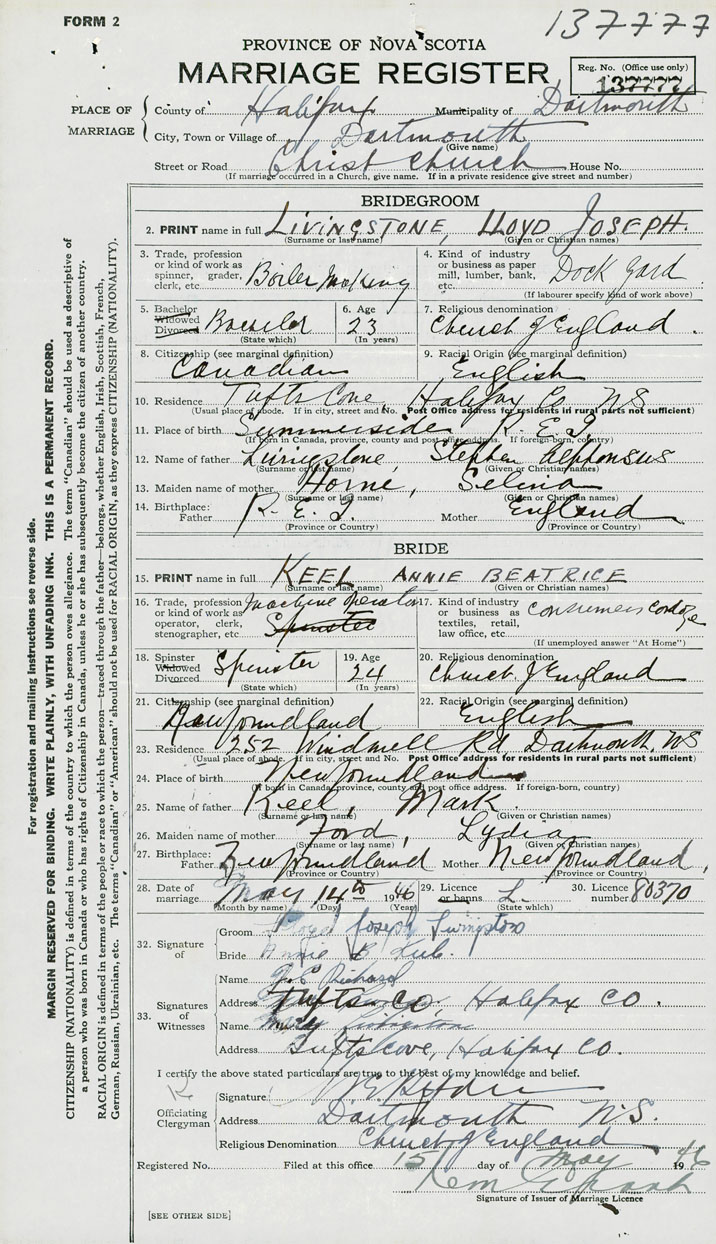 FORM 2
137777
PROVINCE OF NOVA SCOTIA
MARRIAGE REGISTER
Reg. No. (Office use only)
137777
PLACE OF MARRIAGE
County of Halifax Municipality of Dartmouth
City, Town or Village of Dartmouth
(Give name)
Street or Road Christ Church House No.
(If marriage occurred in a Church, give name. If in a private residence give street and number)
BRIDEGROOM
2. PRINT name in full LIVINGSTONE, LLOYD JOSEPH.
(Surname or last name) (Given or Christian names)
3. Trade, profession or kind of work as spinner, grader, clerk, etc. Boiler Making
4. Kind of industry or business as paper mill, lumber, bank, etc. Dock Yard
(If labourer specify kind of work above)
5. Bachelor Widowed Divorced Bachelor
(State which)
6. Age 23
(In years)
7. Religious denomination
Church of England.
8. Citizenship (see marginal definition)
Canadian
9. Racial Origin (see marginal definition)
English
10. Residence Tufts Cove, Halifax Co NS
(Usual place of abode. If in city, street and No. Post Office address for residents in rural parts not sufficient)
11. Place of birth Summerside P.E.I.
(If born in Canada, province, county and post office address. If foreign-born, country)
12. Name of father Livingstone, Stephen Alphonsus
(Surname or last name) (Given or Christian names)
13. Maiden name of mother Horne, Selina
(Surname or last name) (Given or Christian names)
14. Birthplace: Father P.E.I. Mother England
(Province or Country) (Province or Country)
BRIDE
15. PRINT name in full KEEL ANNIE BEATRICE
(Surname or last name) (Given or Christian names)
16. Trade, profession or kind of work as operator, clerk, stenographer, etc Machine Operator
Spinster
17. Kind of industry or business as textiles, retail, law office, etc. Consumers Cordage
(If unemployed answer "At Home")
18. Spinster Widowed Divorced Spinster
(State which)
19. Age 24
(In years)
20. Religious denomination
Church of England
21. Citizenship (see marginal definition)
Newfoundland
22. Racial Origin (see marginal definition)
English
23. Residence 252 Windmill Rd, Dartmouth. NS
(Usual place of abode. If in city, street and No. Post Office address for residents in rural parts not sufficient)
24. Place of birth Newfoundland
(If born in Canada, province, county and post office address. If foreign-born, country)
25. Name of father Keel, Mark
(Surname or last name) (Given or Christian names)
26. Maiden name of mother Ford, Lydia
(Surname or last name) (Given or Christian names)
27. Birthplace: Father Newfoundland Mother Newfoundland,
(Province or Country) (Province or Country)
28. Date of marriage May 14th 1946
(Month by name) (Day) (Year)
29. Licence or banns L.
(State which)
30. Licence number 80370
32. Signature of
Groom Lloyd Joseph Livingston
Bride Annie B.
33. Signatures of Witnesses
Name Richard
Address Tufts Co, Halifax CO.
Name Mary Livingstone
Address Tufts Cove, Halifax CO.
I certify the above stated particulars are true to the best of my knowledge and belief.
Officiating Clergyman
Signature:
Address Dartmouth N.S.
Religious Denomination Church of England
Registered No. Filed at this office 15 day of May 1946
Signature of Issuer of Marriage Licence
[SEE OTHER SIDE]
For registration and mailing instructions see reverse side.
MARGIN RESERVED FOR BINDING. WRITE PLAINLY, WITH UNFADING INK. THIS IS A PERMANENT RECORD.
CITIZENSHIP (NATIONALITY) is defined in terms of the country to which the person owes allegiance. The term "Canadian" should be used as descriptive of
a person who was born in Canada or who has rights of Citizenship in Canada, unless he or she has subsequently become the citizen of another country.
RACIAL ORIGIN is defined in terms of the people or race to which the person—traced through the father—belongs, whether English, Irish, Scottish, French,
German, Russian, Ukrainian, etc. The terms "Canadian" or "American" should not be used for RACIAL ORIGIN, as they express CITIZENSHIP (NATIONALITY).